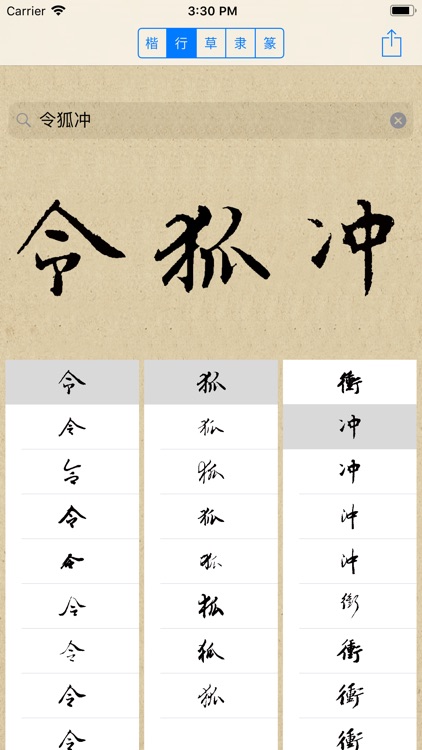 Carrier 3:30 PM
楷 行 草 隶 篆
令狐冲
令 狐 冲
令 狐 衝
令 狐 冲
令 狐 冲
令 狐 冲
令 狐 冲
令 狐 衝
令 狐 衝
令 狐 衝
令 衝